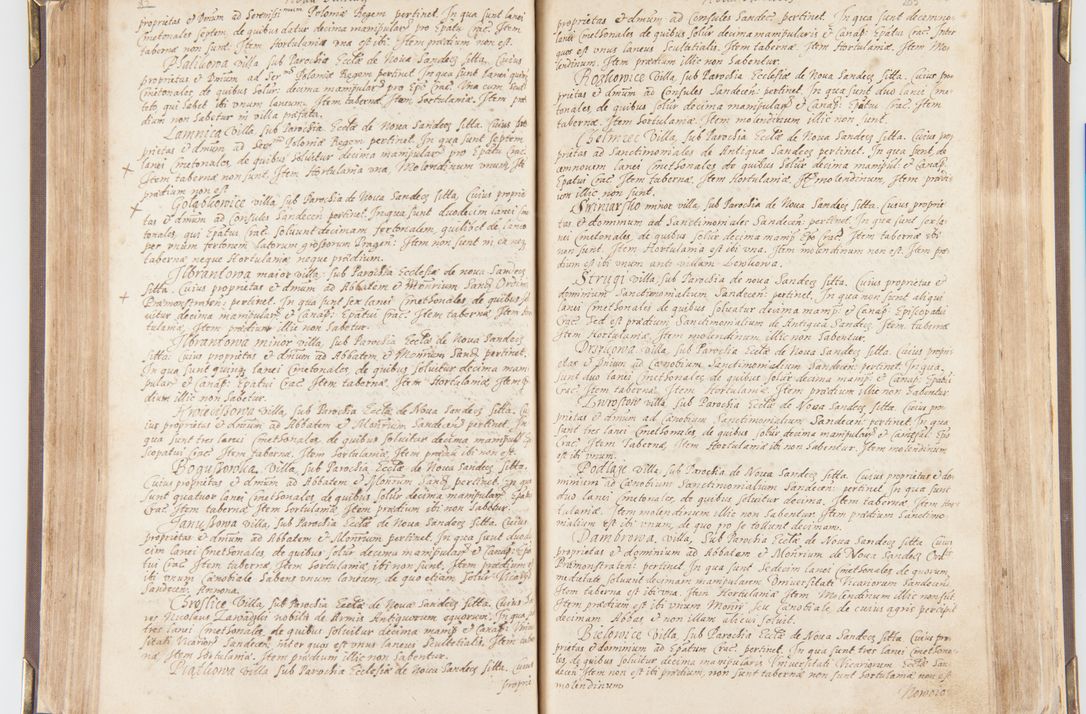 proprietas et Dnium ad Serenissimum Poloniæ Regem pertinet. In qua sunt lanei
Cmetonales septem de quibus datur decima manipular pro Epatu Crac. Item
tabernæ non sunt. Item Hortulania vna est ibi. Item prædium non est.
villa, sub Parochia Eccliæ de Noua Sandecz sitta. Cuius
proprietas et Dnium ad Ser Poloniæ Regem pertinet. In qua sunt lanei
Cmetonales, de quibus solur decima manipular pro Epo Crac. Vna cum
toti qui habet ibi vnum laneum. Item tabernæ, Item hortulaniæ, Item præ
dium non habetur in villa præfata.
Lamnica Villa, sub Parochia Eccliæ de Noua Sandecz sitta. Cuius pro
prietas et dnium ad Ser Poloniæ Regem pertinet. In qua sunt septem
lanei Cmetonales, de quibus soluitur decima manipular pro Epatu Crac.
Item tabernæ non sunt. Item Hortulania vna, Molendinum vnum, Item
prædium non est.
Golabkowice villa, sub Parochia de Noua Sandecz sitta, Cuius proprie
tas et dnium ad Consules Sandecen pertinet. In qua sunt duodecim lanei Cme
tonales, qui Epatui Crac. soluunt decimam fertonalem, quilibet de laneo
per vnum fertonem latorum grossorum Pragen. Item non sunt in ea neq
tabernæ neque Hortulaniæ neque prædium.
Jlbrandowa maior villa, sub Parochia Ecclesiæ de noua Sandecz
sitta. Cuius proprietas et dnium ad Abbatem et Monrium Sand Ordin
Præmonstraten: pertinet. In qua sunt sex lanei Cmethonales de quibus sol
uitur decima manipular et Canap: Epatui Crac. Item tabernæ Item hor
tulaniæ, Item prædium illic non habetur.
Jlbrandowa minor villa, sub Parochia Eccliæ de Noua Sandecz
sitta: cuius proprietas et dnium ad Abbatem et Monrium Sand pertinet.
In qua sunt quinq lanei Cmetonales de quibus soluitur decima mani
pular et Canap: Epatui Crac Item tabernæ, Item Hortulaniæ, Item præ
dium illic non habetur.
villa, sub Parochia Eccliæ de Noua Sandecz sitta. Cu
ius proprietas et dnium ad Abbatem et Monrium Sandecen pertinet. In
qua sunt tres lanei Cmethonales, de quibus soluitur decima manipul Epi
scopatui Crac. Item tabernæ, Item Hortulaniæ, Item prædium ibi non est.
Boguszowka Villa, sub Parochia Eccliæ de Noua Sandecz sitta.
Cuius proprietas et dnium ad Abbatem et Monrium Sand pertinet. In qua
sunt quatuor lanei Cmetonales, de quibus solur decima manipular Epatui
Crac Item tabernæ, Item hortulaniæ, Item prædium ibi non habetur.
Januszowa villa, sub Parochia Eccliæ de Noua Sandecz sitta, Cuius
proprietas et dnium ad Abbatem et Monrium pertinet. In qua sunt duode
cim lanei Cmethonales de quibus solur decima manipular et Canap Epa
tui Crac Item tabernæ Item hortulaniæ, ibi non sunt, Item prædium est
ibi vnum Cænobiale habens vnum laneum, de quo etiam solur Vicarijs
Sandecen: Annona.
Chroslice Villa, sub Parochia Eccliæ de Noua Sandecz sitta. Cuius
Nicolaus nobilis de Armis Antiquorum equorum. In qua
tres lanei Cmethonales, de quibus soluitur decima manip et Canap Vniuer
sitati Vicarior Sandecen: inter quos est vnus laneus Scultetialis, Item taber
næ, Item hortulaniæ, Item prædium illic non habentur.
Piatkowa villa, sub Parochia Ecclesiæ de Noua Sandecz sitta. Cuius
proprie
proprietas et dnium ad Consules Sandec pertinet. In qua sunt decemno
lanei Cmetonales de quibus solur decima manipularis et Canap: Epatui Crac. Inter
quos est vnus laneus Scultetialis. Item tabernæ, Item Hortulaniæ, Item Mo
lendinum, Item prædium illic non habentur.
Roszkowice Villa, sub Parochia Ecclesiæ de Noua Sandecz sitta. Cuius pro
prietas et dnium ad Consules Sandecen: pertinet. In qua sunt duo lanei Cme
tonales, de quibus solur decima manipular et Canap: Epatui Crac. Item
tabernæ, Item hortulaniæ, Item molendinum illic non sunt.
Chelmiec Villa, sub Parochia Eccliæ de Noua Sandecz sitta. Cuius pro
prietas ad Sanctimoniales de Antiqua Sandecz pertinet. In qua sunt de
cemnouem lanei Cmethonales, de quibus solur decima manipul et Canap:
Epatui Crac Item tabernæ, Item hortulaniæ, Item molendinum, Item prædi
um illic non sunt.
Swiniarsko minor villa, sub Parochia de Noua Sandecz sitta. Cuius proprie
tas et dominium ad Sanctimoniales Sandecen: pertinet. In qua sunt sex la
nei Cmetonales, de quibus solur decima manip Epo Crac. Item tabernæ ibi
non sunt, Item Hortulania est ibi vna. Item molendinum non est. Item præ
dium est ibi vnum ante villam
Strugi villa, sub Parochia de noua Sandecz sitta. Cuius proprietas et
dominium Sanctimonialium Sandecen: pertinet. In qua non sunt aliqui
lanei Cmethonales, de quibus soluatur decima manip: et Canap: Episcopatui
Crac Sed est prædium Sanctimonialium de Antiqua Sandec, Item tabernæ
Item Hortulaniæ, Item molendinum, illic non habentur.
villa, sub Parochia Eccliæ de Noua Sandecz sitta. Cuius propri
etas et Dnium ad Cænobium Sanctimonialium Sandecen: pertinet. In qua
sunt duo lanei Cmethonales, de quibus solur decima manip et Canap: Epatui
Crac. Item tabernæ, Item Hortulaniæ, Item prædium illic non habentur.
villa, sub Parochia Eccliæ de Noua Sandecz sitta. Cuius pro
prietas et dnium ad Cænobium Sanctimonialium Sandecen: pertinet. In qua
sunt tres lanei Cmethonales, de quibus solur decima manipular et Canapal: Epo
Crac Item Tabernæ, Item Hortulaniæ ibi non habentur. Item molendinum
est ibi vnum.
Podlaze villa, sub Parochia de Noua Sandecz sitta. Cuius proprietas et do
minium ad Cænobium Sanctimonialium Sandecen: pertinet. In qua sunt
duo lanei Cmetonales, de quibus soluitur decima, Item tabernæ Item Hor
tulaniæ, Item molendinum illic non habentur, Item prædium Sanctimo
nialium est ibi vnum, de quo pro se tollunt decimam.
Dambrowa, villa, sub Parochia Eccliæ de Noua Sandecz sitta cuius
proprietas et dominium ad Abbatem et Monrium de Noua Sandec Ord:
Præmonstraten: pertinet. In qua sunt Sedecim lanei Cmethonales de quorum
medietate soluunt decimam manipularem Vniuersitati Vicariorum Sandecens:
Item taberna est ibi vna. Item Hortulaniæ Item Molendinum illic non sunt
Item prædium est ibi vnum Monrij, seu Cænobiale, de cuius agris percipit
decimam Abbas et non illam alicui soluit.
Bielowice Villa, sub Parochia Eccliæ de Noua Sandecz sitta Cuius pro
prietas et dominium ad Epatum Crac. pertinet. In qua sunt tres lanei Cmethona
les, de quibus soluitur decima manipularis Vniuersitati Vicariorum Eccliæ San
decen Item non est ibi prædium, non sunt tabernæ, non sunt hortulaniæ non est
molendinum.